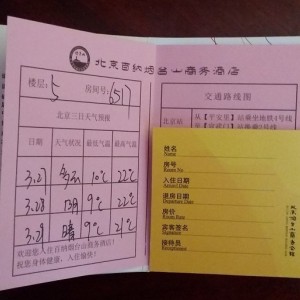 北京百纳烟台山商务酒店
楼层: 5 房间号: 6517
北京三日天气预报
日期 天气状况 最低气温 最高气温
3.27 多云 10℃ 22℃
3.28 阴 9℃ 22℃
3.29 晴 9℃ 21℃
欢迎您入住百纳烟台山商务酒店!
祝您身体健康,入住愉快!
交通路线图
北京站
姓名
Name
房号
Room No
入住日期
Arrival Date
退房日期
Departure Date
房价
Room Rate
宾客签名
Signature
接待员
Receptionist